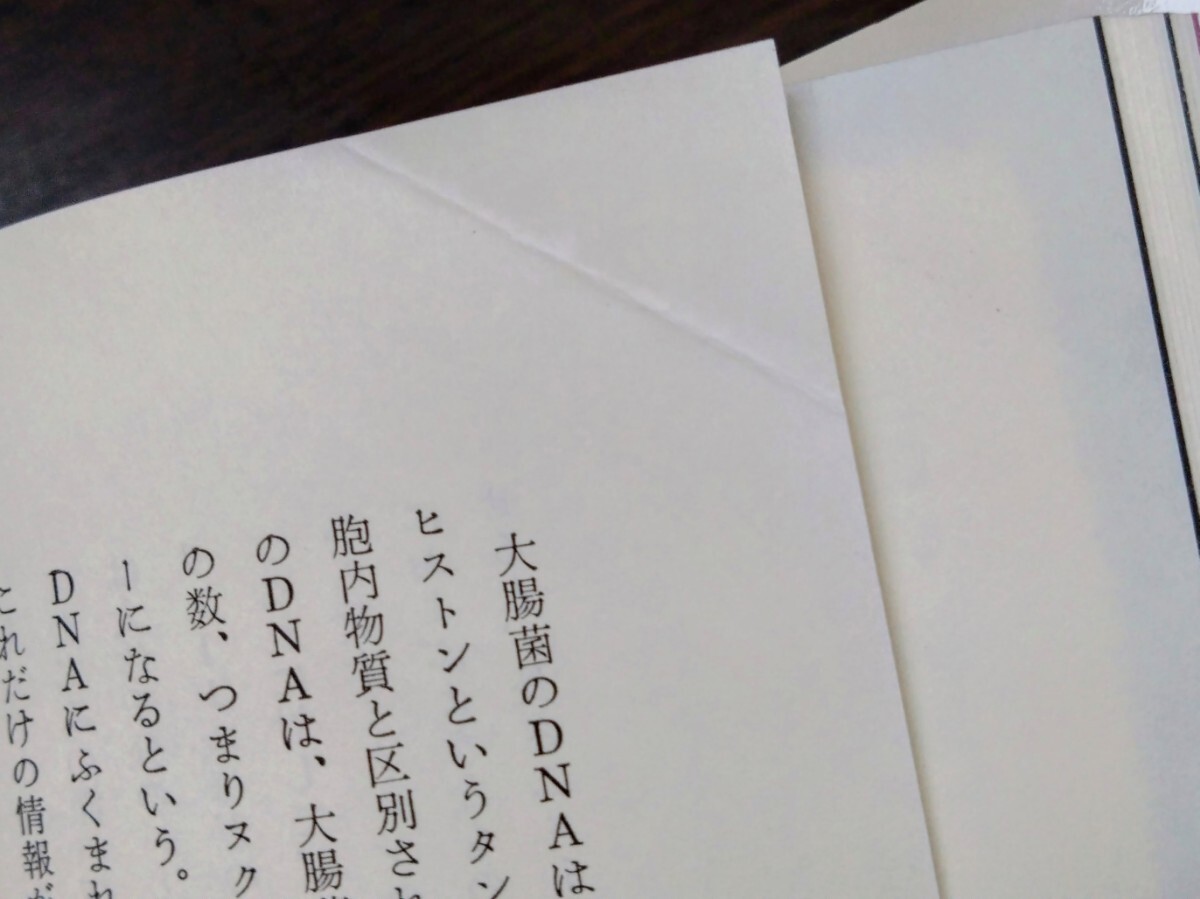 大腸菌のDNAは
ヒストンというタン
胞内物質と区別され
のDNAは、大腸
の数、つまりヌク
ーになるという。
DNAにふくまれ
これだけの情報が